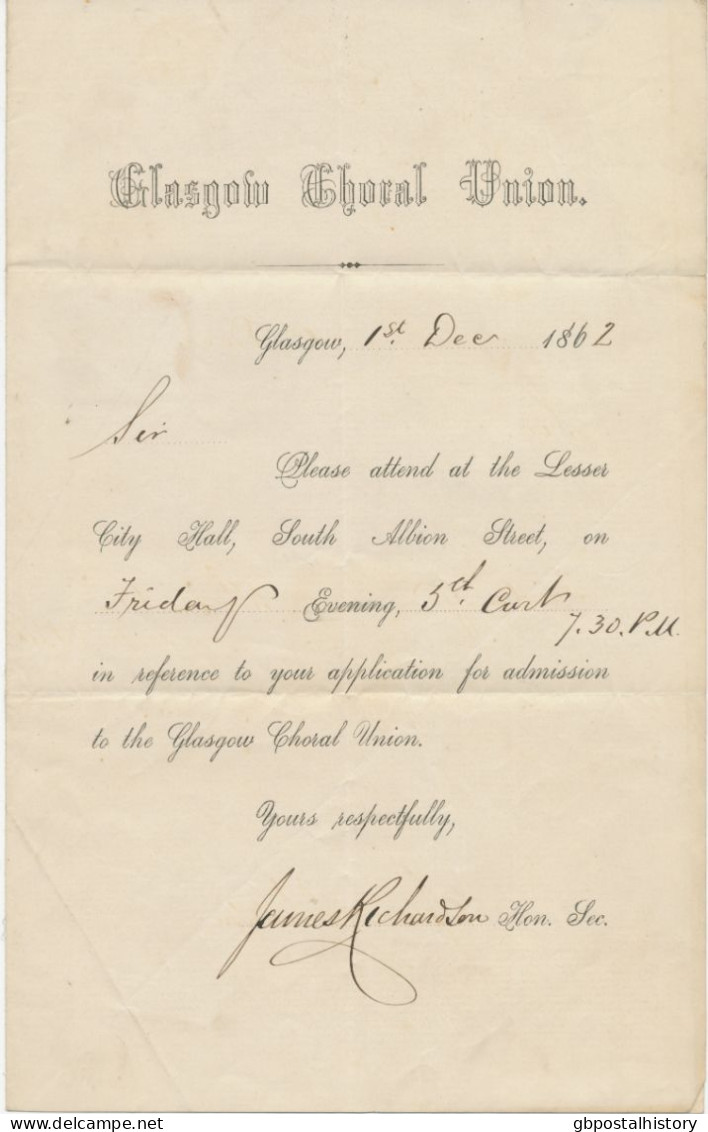 Glasgow Choral Union.
Glasgow, 1st. Dec 1862
Sir
Please attend at the Lesser
City Hall, South Albion Street, on
Friday Evening, 5th. Curt
7.30. P.M.
in reference to your application for admission
to the Glasgow Choral Union.
Yours respectfully,
James Richardson Hon. Sec.
delcampe.net
gbpostalhistory